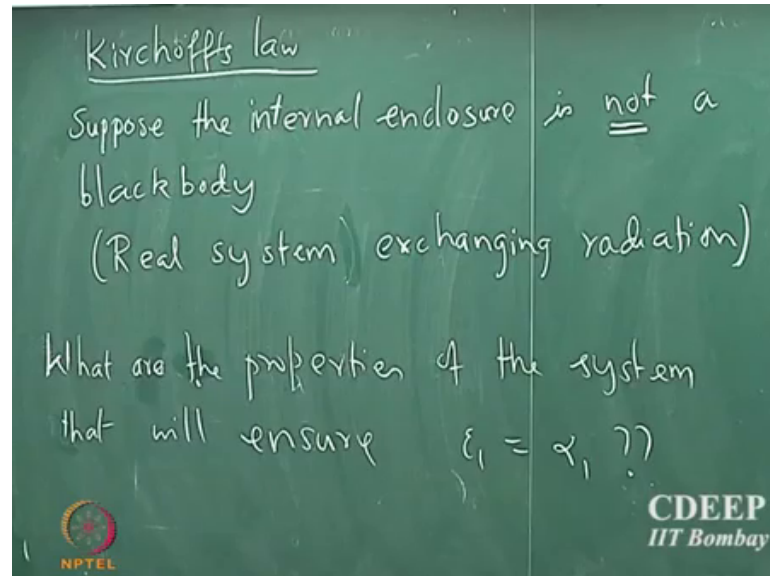 Kirchoffts law
Suppose the internal enclosure is not a
blackbody
(Real system exchanging radiation)
What are the properties of the system
that will ensure ε₁ = α₁ ??
CDEEP
IIT Bombay
NPTEL